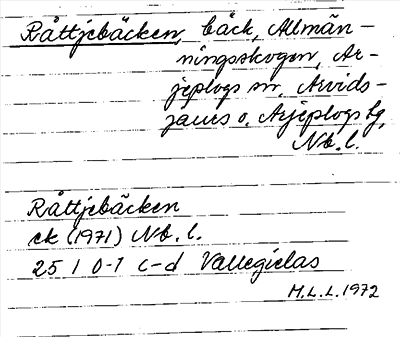 Råttjebäcken, bäck, Allmän-
ningsskogen, Ar-
jeplogs sn. Arvids-
jaurs o. Arjeplogs tg,
Nb. l.
Råttjebäcken
ek (1971) Nb. l.
25 I 0-1 c-d Vallegielas
M.L.L. 1972